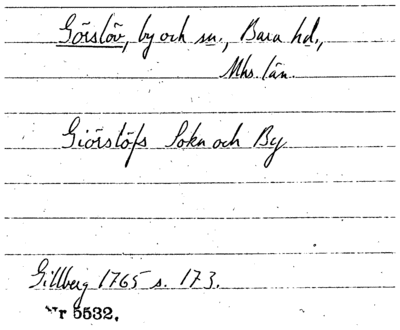 Görslöv, by och sn., Bara hd.,
Mhs. län.
Giörslöfs Sokn och By
Gillberg 1765 s. 173.
Nr 5532.